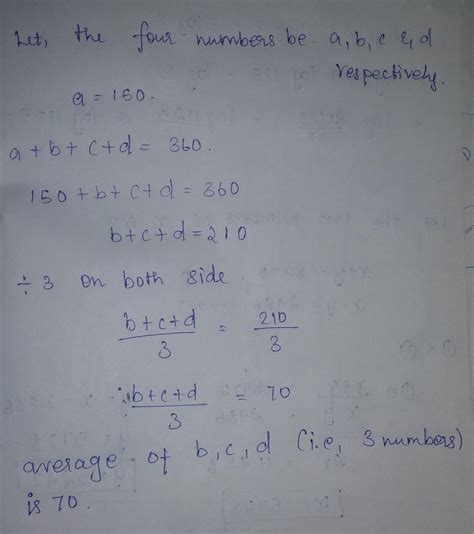 Let, the four numbers be a, b, c & d
respectively.
a = 150.
a + b + c + d = 360.
150 + b + c + d = 360
b + c + d = 210
÷ 3 on both side.
b + c + d / 3 = 210 / 3
∴ b + c + d / 3 = 70
average of b, c, d (i.e, 3 numbers)
is 70.